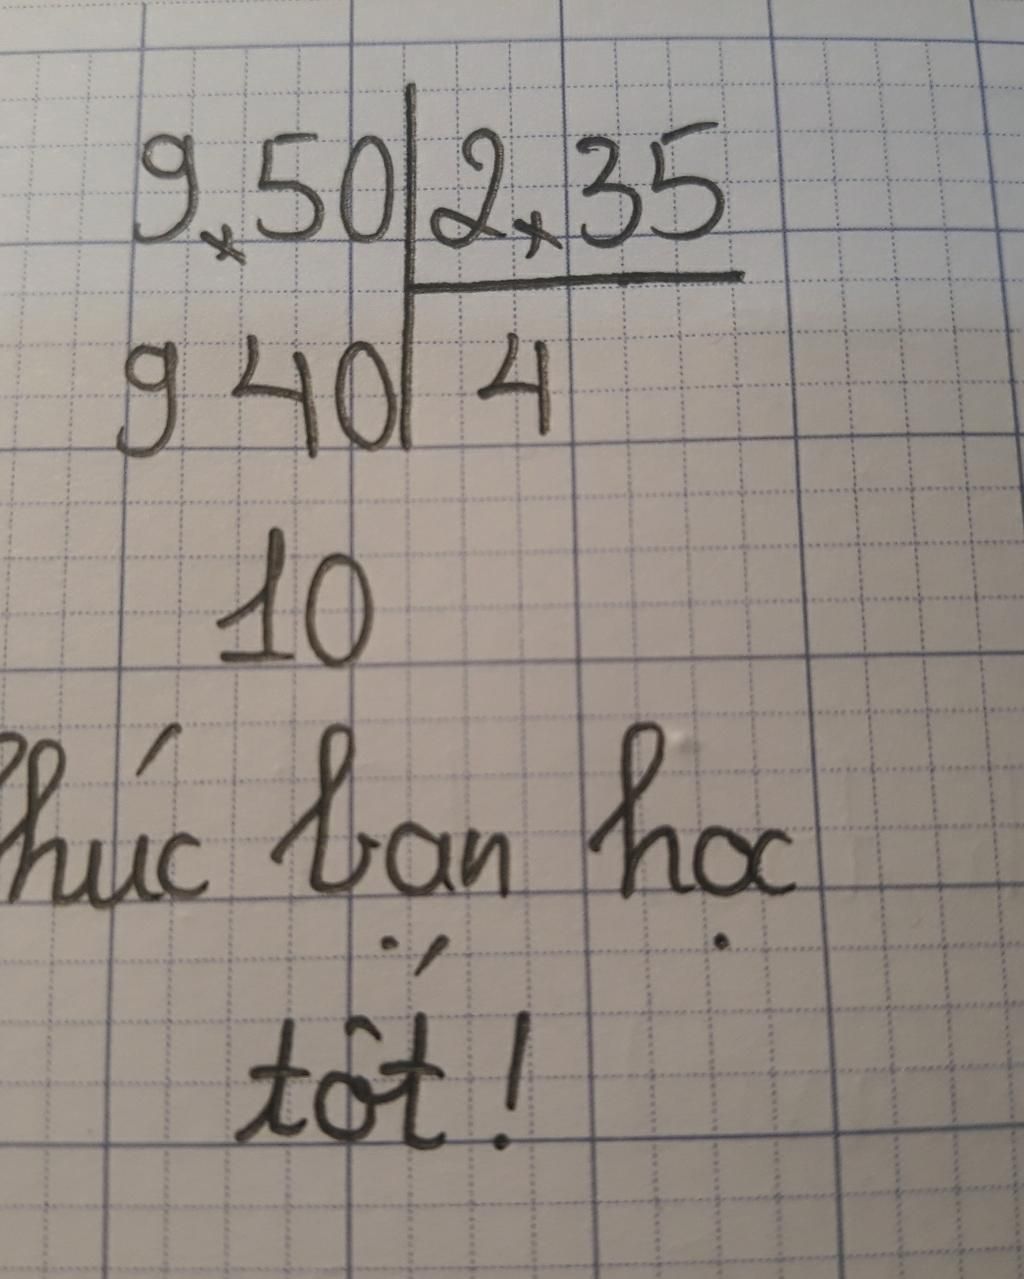 9,50 2,35
940 4
10
húc bạn học
tốt!